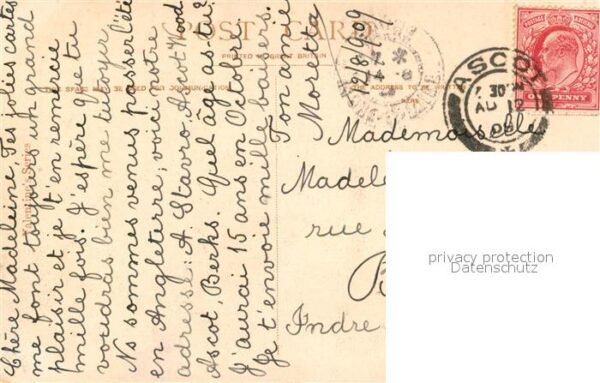 POST CARD
PRINTED IN GREAT BRITAIN
THE SPACE MAY BE USED FOR COMMUNICATION
THE ADDRESS TO BE WRITTEN HERE
Valentine's Series
Chère Madeleine, Tes jolies cartes
me font toujours un grand
plaisir et je t'en remercie
mille fois. J'espère que tu
voudras bien me tutoyer.
Ns sommes venus passer l'été
en Angleterre; voici notre
adresse: A Stavro, Ascot Wood
Ascot, Berks. Quel âge as-tu?
J'aurai 15 ans en Octobre
Je t'envoie mille baisers.
Ton amie
Moretta
12/8/909
ASCOT
7 30 PM
AU 12
09
POSTAGE REVENUE
ONE PENNY
Mademoiselle
Madele
rue
Indre
privacy protection
Datenschutz